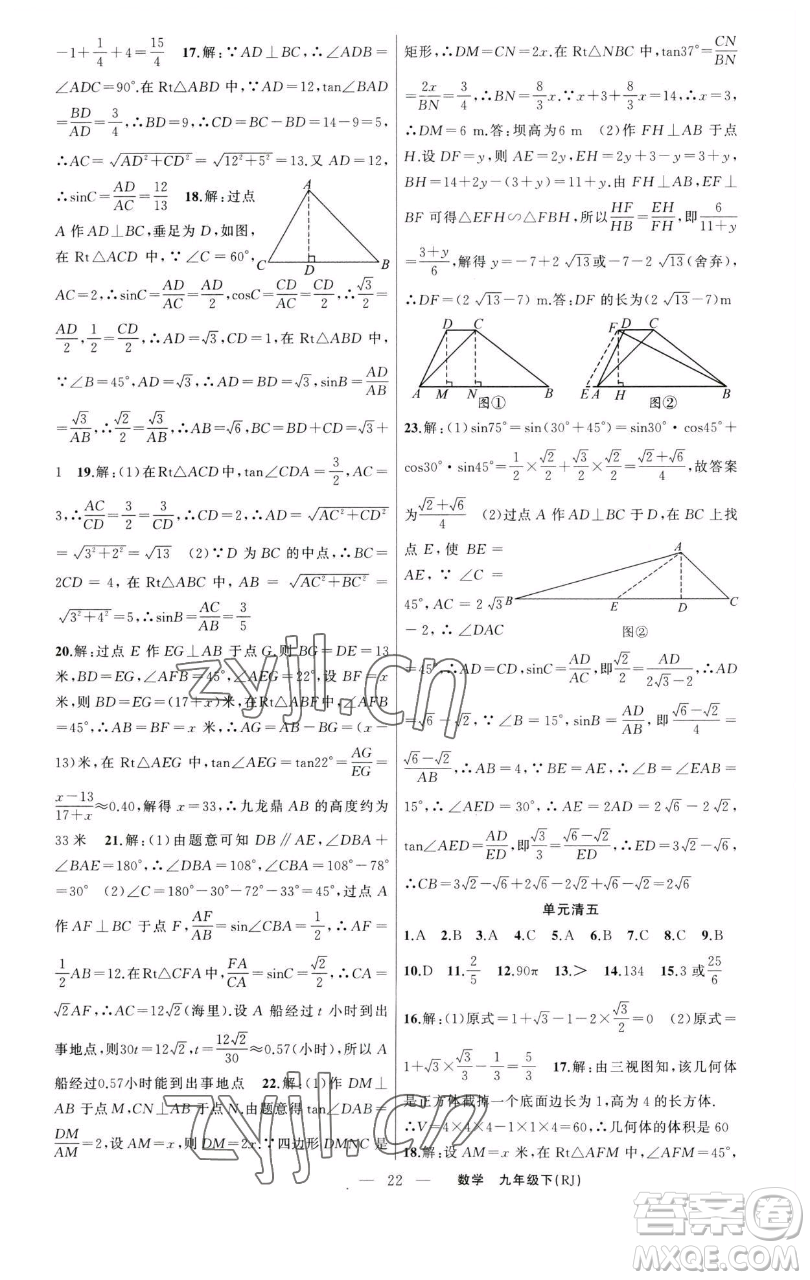 -1+1/4+4=15/4 17.解：∵AD⊥BC，∴∠ADB=
∠ADC=90°.在Rt△ABD中，∵AD=12，tan∠BAD
=BD/AD=3/4，∴BD=9，∴CD=BC-BD=14-9=5，
∴AC=√(AD²+CD²)=√(12²+5²)=13.又AD=12，
∴sinC=AD/AC=12/13 18.解：过点
A作AD⊥BC，垂足为D，如图，
在Rt△ADC中，∵∠C=60°，
A
C D B
AC=2，∴sinC=AD/AC=AD/2，cosC=CD/AC=CD/2，∴√3/2=
AD/2，1/2=CD/2，∴AD=√3，CD=1，在Rt△ABD中，
∵∠B=45°，AD=√3，∴BD=AD=√3，sinB=AD/AB
=√3/AB，∴√2/2=√3/AB，∴AB=√6，BC=BD+CD=√3+
1 19.解：(1)在Rt△ACD中，tan∠CDA=3/2，AC=
3，∴AC/CD=3/CD=3/2，∴CD=2，∴AD=√(AC²+CD²)
=√(3²+2²)=√13 (2)∵D为BC的中点，∴BC=
2CD=4，在Rt△ACB中，AB=√(AC²+BC²)=
√(3²+4²)=5，∴sinB=AC/AB=3/5
20.解：过点E作EG⊥AB于点G，则BG=DE=13
米，BD=EG，∠AFB=45°，∠AEG=22°，设BF=x
米，则BD=EG=(17+x)米，在Rt△ABF中，∠AFB
=45°，∴AB=BF=x米，∴AG=AB-BG=(x-
13)米，在Rt△AEG中，∵tan∠AEG=tan22°=AG/EG=
(x-13)/(17+x)≈0.40，解得x=33，∴九龙鼎AB的高度约为
33米 21.解：(1)由题意可知DB∥AE，∠DBA+
∠BAE=180°，∴∠DBA=108°，∴∠CBA=108°-78°
=30° (2)∠C=180°-30°-72°-33°=45°，过点A
作AF⊥BC于点F，AF/AB=sin∠CBA=1/2，∴AF=
1/2AB=12.在Rt△CFA中，FA/CA=sinC=√2/2，∴AC=
√2AF，∴AC=12√2(海里).设A船经过t小时到出
事地点，则30t=12√2，t=12√2/30≈0.57(小时)，所以A
船经过0.57小时能到出事地点 22.解：(1)作DM⊥
AB于点M，CN⊥AB于点N.由题意得tan∠DAB=
DM/AM=2，设AM=x，则DM=2x.∵四边形DMNC是
矩形，∴DM=CN=2x.在Rt△NBC中，tan37°=CN/BN
=2x/BN=3/4，∴BN=8/3x.∵x+3+8/3x=14，∴x=3，
∴DM=6 m.答：坝高为6 m (2)作FH⊥AB于点
H.设DF=y，则AE=2y，EH=2y+3-y=3+y，
BH=14+2y-(3+y)=11+y.由FH⊥AB，EF⊥
BF可得△EFH∽△FBH，所以HF/HB=EH/FH，即6/(11+y)
=(3+y)/6，解得y=-7+2√13或-7-2√13(舍弃)，
∴DF=(2√13-7) m.答：DF的长为(2√13-7)m
D C
A M N B
图①
F D C
E A H B
图②
23.解：(1)sin75°=sin(30°+45°)=sin30°·cos45°+
cos30°·sin45°=1/2×√2/2+√3/2×√2/2=(√2+√6)/4，故答案
为(√2+√6)/4 (2)过点A作AD⊥BC于D，在BC上找
点E，使BE=
AE，∵∠C=
45°，AC=2√3
-2，∴∠DAC
A
B E D C
图②
=45°，∴AD=CD，sinC=AD/AC，即√2/2=AD/(2√3-2)，∴AD
=√6-√2，∵∠B=15°，sinB=AD/AB，即(√6-√2)/4=
(√6-√2)/AB，∴AB=4，∵BE=AE，∴∠BAE=∠B=
15°，∴∠AED=30°，∴AE=2AD=2√6-2√2，
tan∠AED=AD/ED，即√3/3=(√6-√2)/ED，∴ED=3√2-√6，
∴CB=3√2-√6+2√6-2√2+√6-√2=2√6
单元清五
1.A 2.B 3.A 4.C 5.A 6.B 7.C 8.C 9.B
10.D 11.2/5 12.90π 13.> 14.134 15.3或25/6
16.解：(1)原式=1+√3-1-2×√3/2=0 (2)原式=
1+√3×√3/3-1/3=5/3 17.解：由三视图知，该几何体
是正方体截掉一个底面边长为1，高为4的长方体.
∴V=4×4×4-1×1×4=60，∴几何体的体积是60
18.解：如图，过点A作AF⊥DE，在Rt△AFM中，∠AFM=45°，
— 22 — 数学 九年级下(RJ)
zyjl.cn
zyjl.cn
答案卷
MXQE.COM